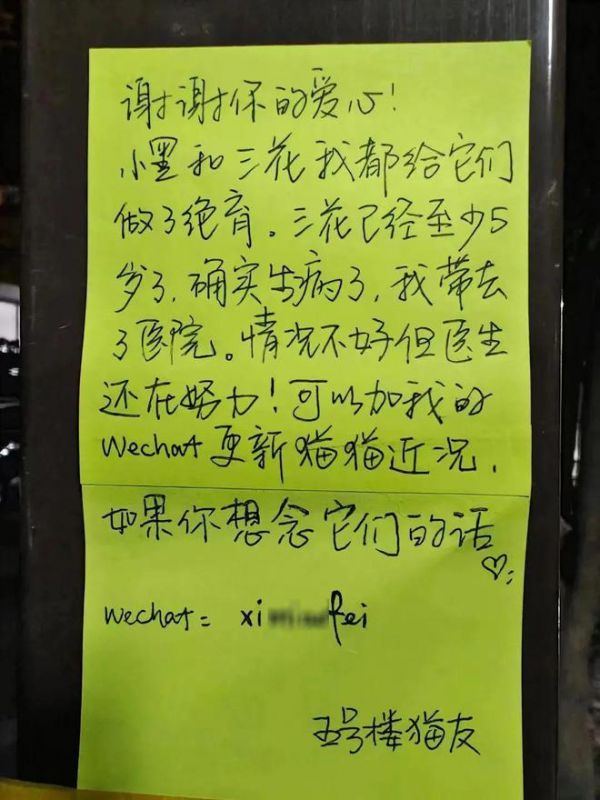 谢谢你的爱心!
小墨和三花我都给它们
做了绝育。三花已经至少5
岁了,确实生病了,我带去
了医院。情况不好但医生
还在努力!可以加我的
Wechat更新猫猫近况,
如果你想念它们的话
♡
wechat: xi fei
五号楼猫友